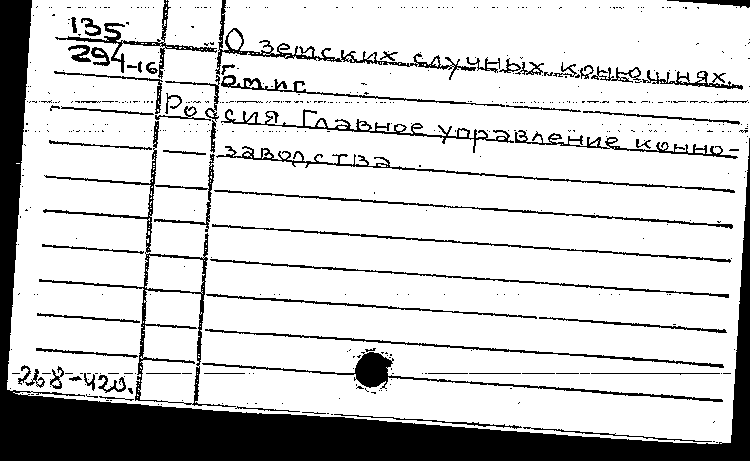 135
294-16
О земских случных конюшнях.
Б.м. и г.
Россия. Главное управление конно-
заводства
268-420.